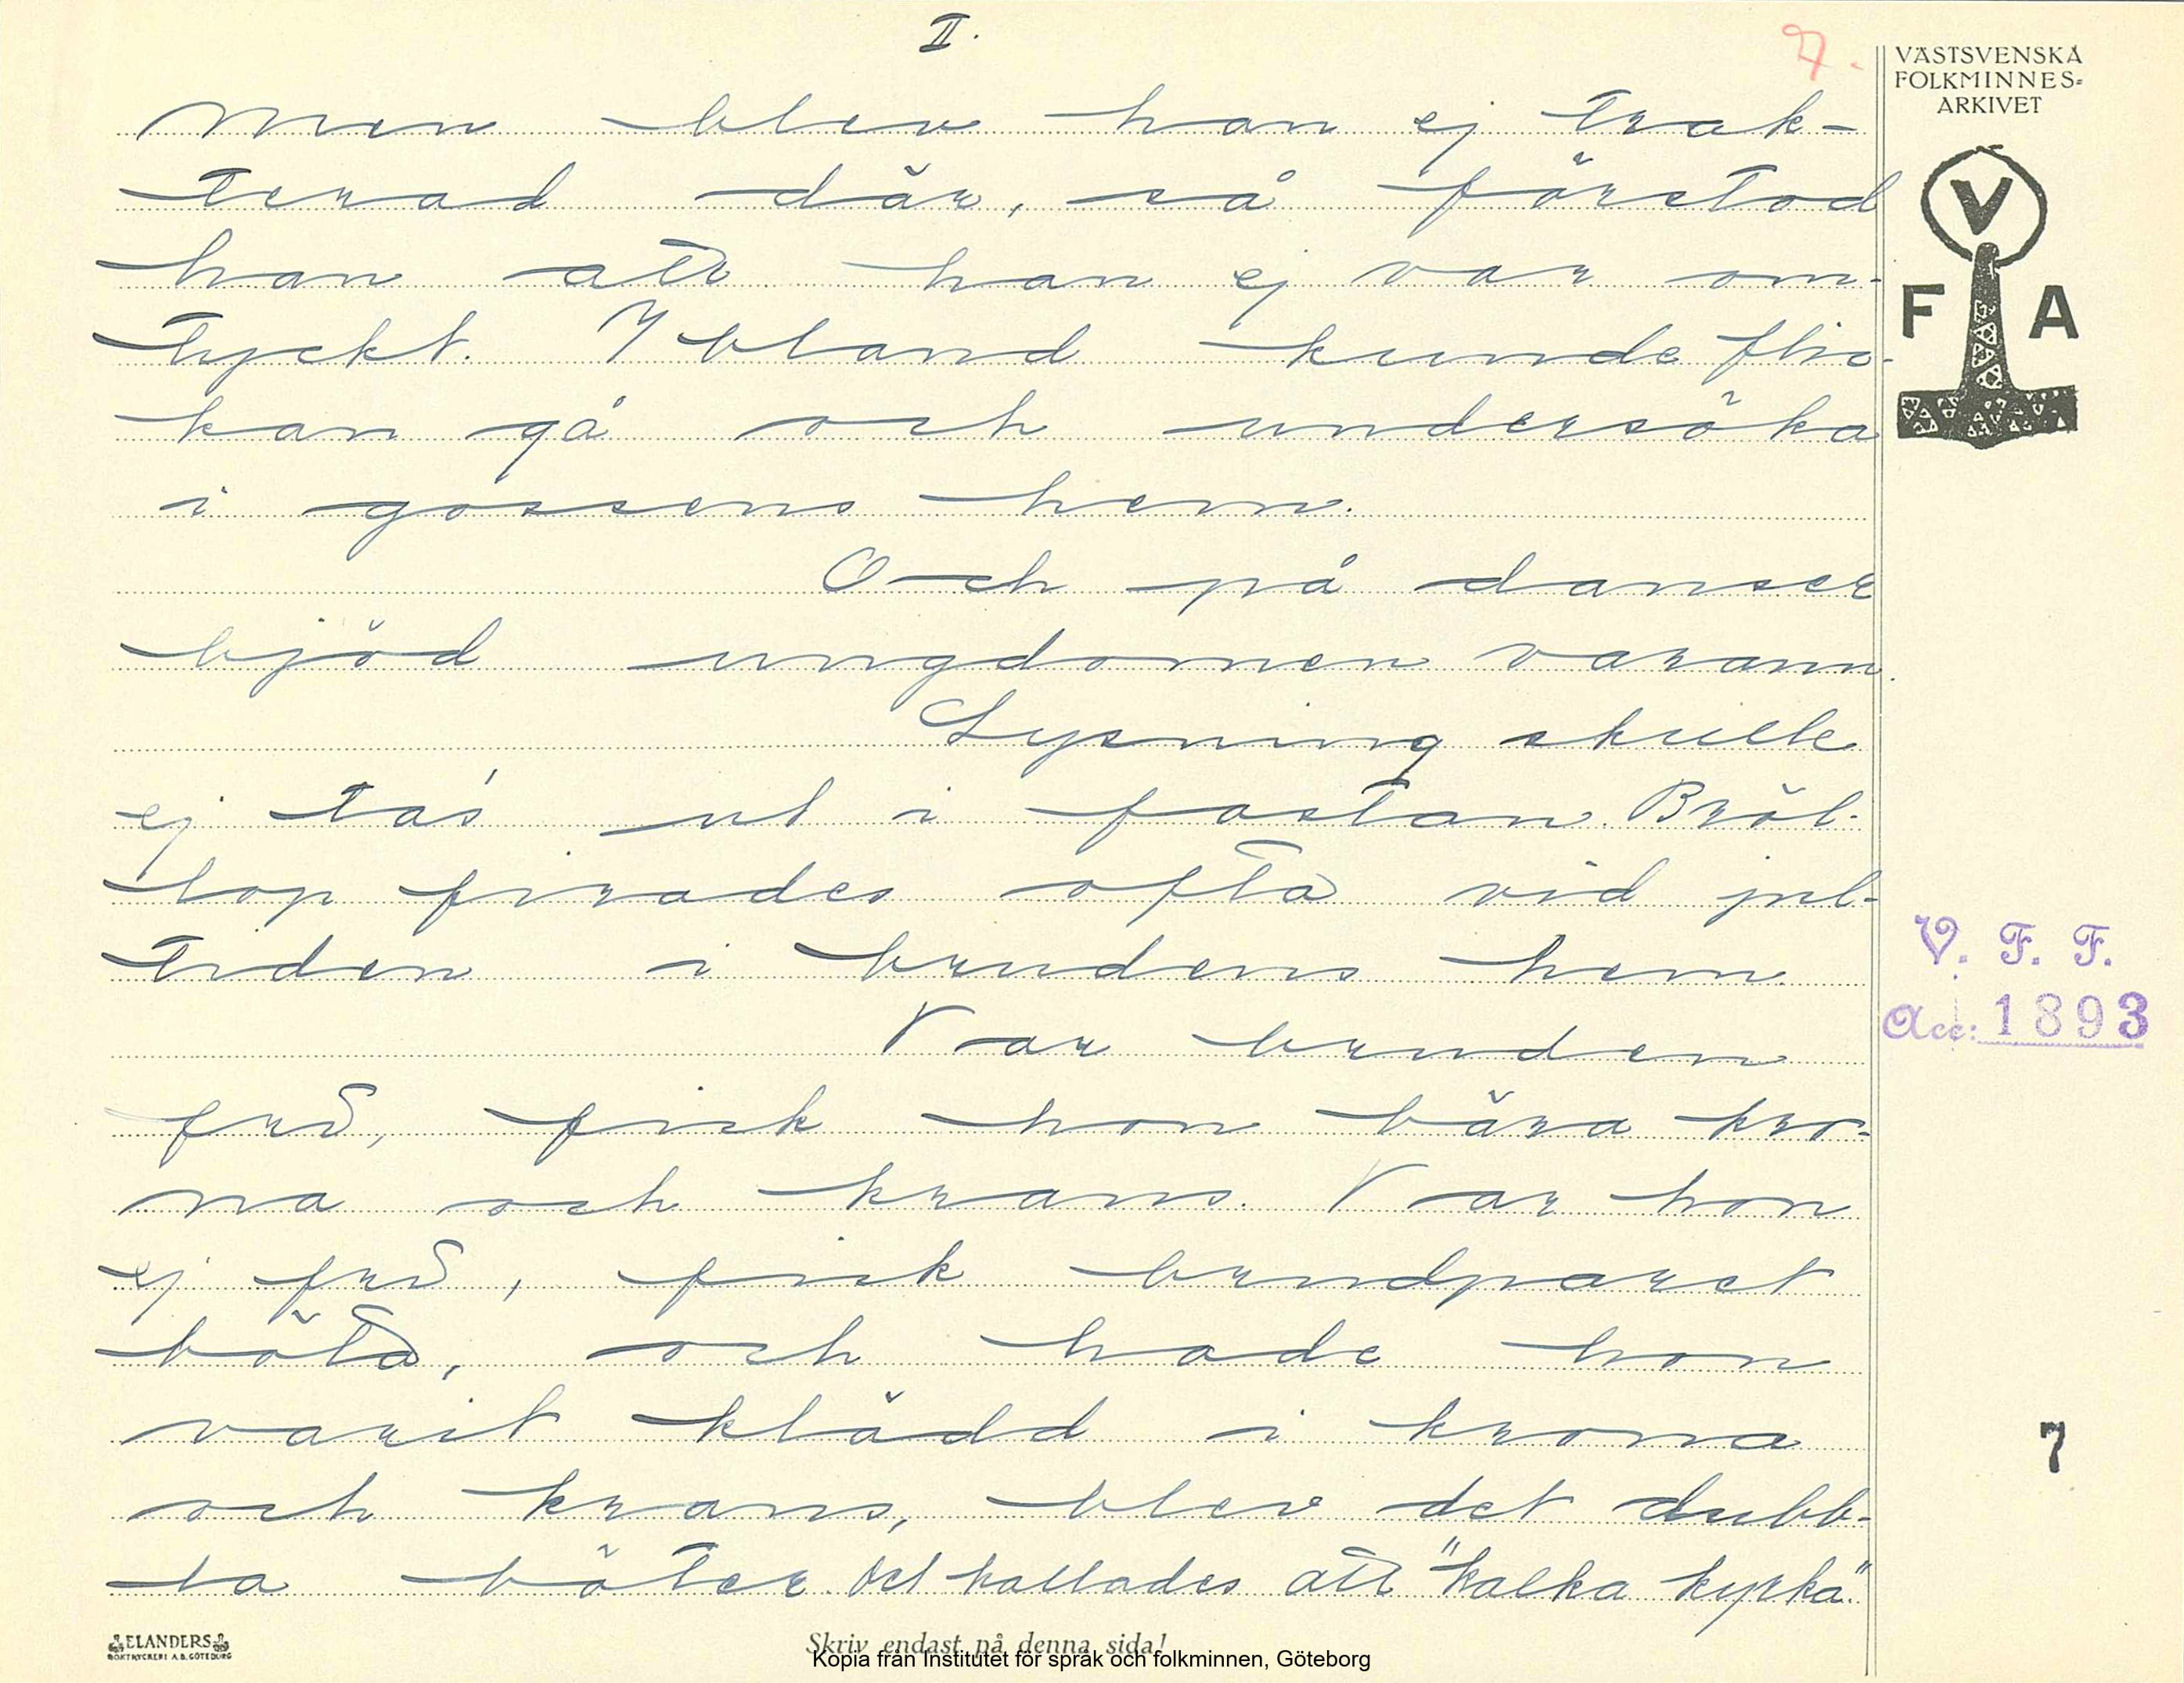 II.
7.
VÄSTSVENSKA
FOLKMINNES=
ARKIVET
V
F A
Men blev han ej trak-
terad där, så förstod
han att han ej var om-
tyckt. Ibland kunde flic-
kan gå och undersöka
i gossens hem.
Och på danser
bjöd ungdomen varann.
Lysning skulle
ej tas ut i fastan. Bröl-
lop firades ofta vid jul-
tiden i brudens hem.
V. F. F.
Acc: 1893
Var bruden
fri, fick hon bära kro-
na och krans. Var hon
ej fri, fick brudparet
böta, och hade hon
varit klädd i krona
7
och krans, blev det dubb-
la böter. Det kallades att "kalka kyrka".
ELANDERS
BOKTRYCKERI A.B. GÖTEBORG
Skriv endast på denna sida!
Kopia från Institutet för språk och folkminnen, Göteborg